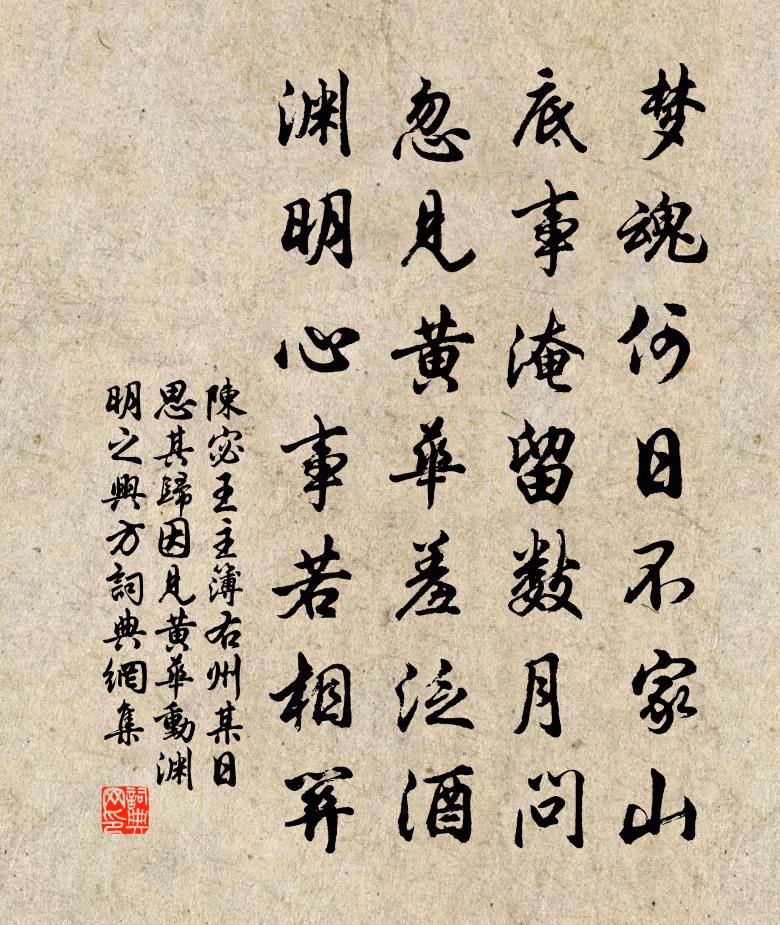 梦魂何日不家山
底事淹留数月问
忽见黄华羞泛酒
渊明心事若相关
陳宓王主簿右州某日
思其歸因見黄華動渊
明之興方詞典網集
詞典
网印